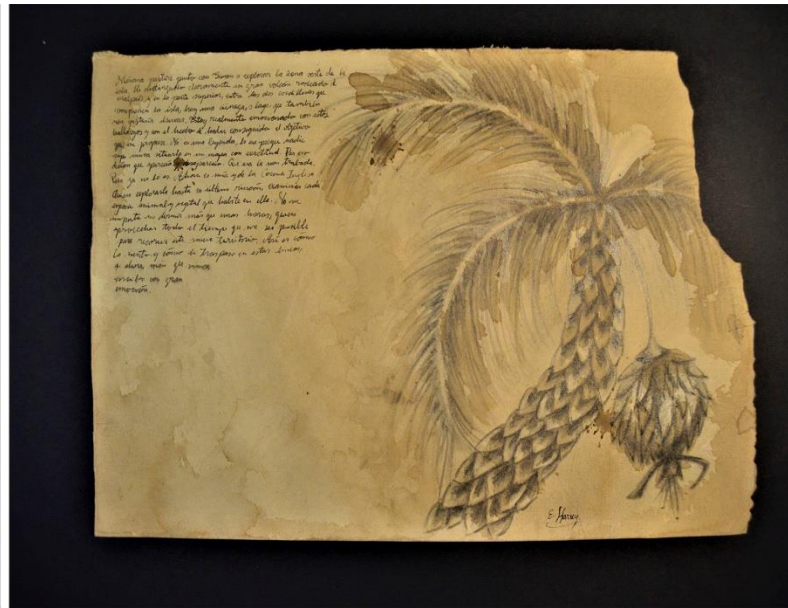 Mañana partiré junto con Simon a explorar la zona norte de la
isla. He distinguido claramente un gran volcán rodeado d
malpaís y en la parte superior, entre las dos cordilleras que
la isla, hay una ciénaga, o lago, que también
Estoy realmente emocionado con estos
hallazgos y con el hecho d haber conseguido el objetivo
que me propuse. No es una leyenda, lo es porque nadie
supo nunca situarla en un mapa con exactitud. Por eso
decían que aparecía y desaparecía. Que era la non trubada.
Pero ya no lo es. Ahora es mía y de la Corona Inglesa
Quiero explorarla hasta su último rincón, examinar cada
especie animal y vegetal que habite en ella. No me
importa no dormir más que unas horas, quiero
aprovechar todo el tiempo que me sea posible
para recorrer este nuevo territorio. Así es como
lo siento y como lo traspaso en estas líneas,
y ahora más que nunca
escribo con gran
emoción.
E. Harvey